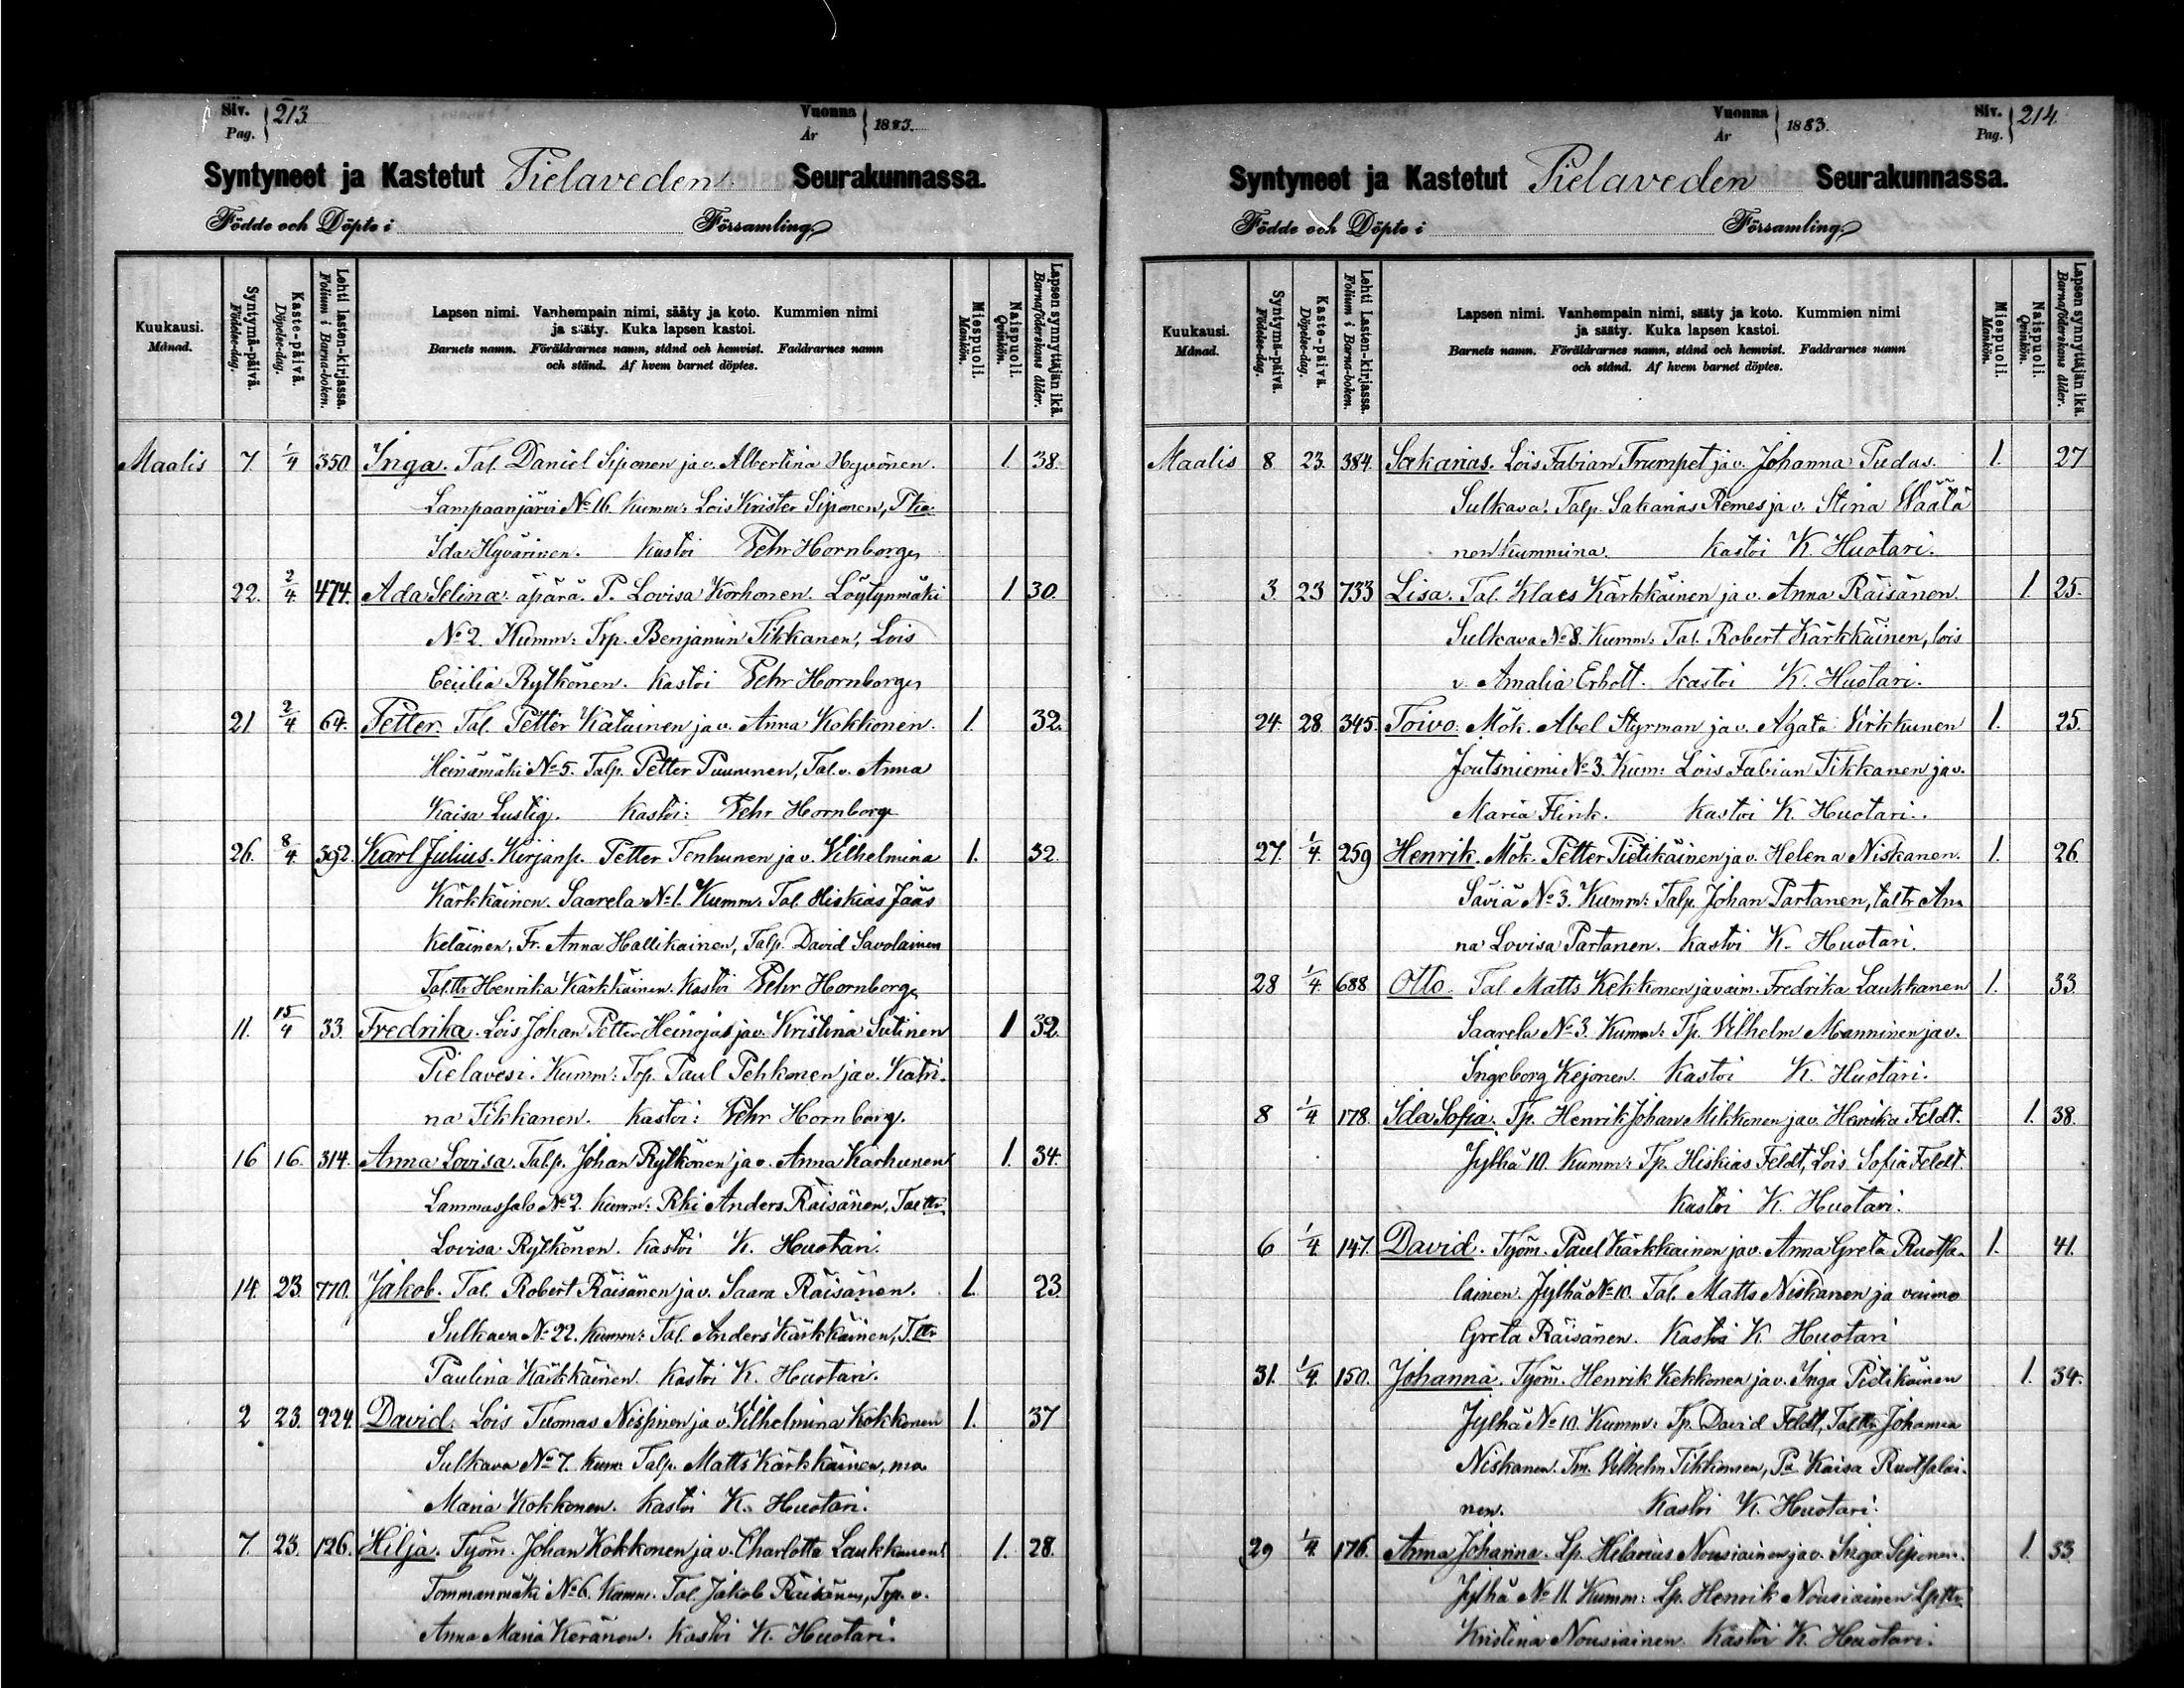 Siv.
Pag. 213.
Vuonna
År 1883.
Syntyneet ja Kastetut Pielaveden Seurakunnassa.
Födde och Döpte i Församling.
Kuukausi.
Månad.
Syntymä-päivä.
Födelse-dag.
Kaste-päivä.
Döpelse-dag.
Lehti lasten-kirjassa.
Folium i Barna-boken.
Lapsen nimi. Vanhempain nimi, sääty ja koto. Kummien nimi
ja sääty. Kuka lapsen kastoi.
Barnets namn. Föräldrarnes namn, stånd och hemvist. Faddrarnes namn
och stånd. Af hvem barnet döptes.
Miespuoli.
Mankön.
Naispuoli.
Qvinkön.
Lapsen synnyttäjän ikä.
Barnaföderskans ålder.
Maalis 7. 1/4 350. Inga. Tal. Daniel Siponen ja v. Albertina Hyvönen. 1. 38.
Lampaanjärvi No 16. Kumm: Lois Krister Siponen,
Ida Hyvärinen. Kastoi Pehr Hornborg
22. 2/4 474. Ada Selina. äpärä. P. Lovisa Korhonen. Löytynmäki 1. 30.
No 2. Kumm: Trp. Benjamin Tikkanen, Lois
Cecilia Rytkönen. Kastoi Pehr Hornborg
21 2/4 64. Petter. Tal. Petter Katainen ja v. Anna Kokkonen. 1. 32.
Heinämäki No 5. Talp. Petter Puurunen, Tal. v. Anna
Kaisa Lustig. Kastoi: Pehr Hornborg
26. 8/4 392. Karl Julius. Kirjanp. Petter Tenhunen ja v. Vilhelmina 1. 32.
Kärkkäinen. Saarela No 1. Kumm: Tal. Hiskias Jääs
keläinen, Fr. Anna Hallikainen, Talp. David Savolainen
Tal.ttr Henrika Kärkkäinen. Kastoi Pehr Hornborg
11. 15/4 33. Fredrika. Lois Johan Petter Heinojas ja v. Kristina Sutinen 1 32.
Pielavesi. Kumm: Trp. Paul Pehkonen ja v. Katri-
na Tikkanen. Kastoi: Pehr Hornborg.
16 16. 314. Anna Lovisa. Talp. Johan Rytkönen ja v. Anna Karhunen 1. 34.
Lammassalo No 2. Kumm: Rki Anders Räisänen, Tal ttr
Lovisa Rytkönen. Kastoi K. Huotari.
14. 23. 770. Jakob. Tal. Robert Räisänen ja v. Saara Räisänen. 1. 23.
Sulkava No 22. Kumm: Tal. Anders Kärkkäinen, T.ttr
Paulina Kärkkäinen Kastoi K. Huotari.
2 23. 224. David. Lois Tuomas Nissinen ja v. Vilhelmina Kokkonen 1. 37
Sulkava No 7. Kum: Talp. Matts Kärkkäinen,
Maria Kokkonen. Kastoi K. Huotari.
7. 23. 126. Hilja. Työm. Johan Kokkonen ja v. Charlotta Laukkanen. 1. 28.
Tommanmäki No 6. Kumm. Tal. Jakob Räisänen, Trp. v.
Anna Maria Keränen. Kastoi K. Huotari.
Vuonna
År 1883.
Siv.
Pag. 214.
Syntyneet ja Kastetut Pielaveden Seurakunnassa.
Födde och Döpte i Församling.
Kuukausi.
Månad.
Syntymä-päivä.
Födelse-dag.
Kaste-päivä.
Döpelse-dag.
Lehti Lasten-kirjassa.
Folium i Barna-boken.
Lapsen nimi. Vanhempain nimi, sääty ja koto. Kummien nimi
ja sääty. Kuka lapsen kastoi.
Barnets namn. Föräldrarnes namn, stånd och hemvist. Faddrarnes namn
och stånd. Af hvem barnet döptes.
Miespuoli.
Mankön.
Naispuoli.
Qvinkön.
Lapsen synnyttäjän ikä.
Barnaföderskans ålder.
Maalis 8. 23. 384. Sakarias. Lois Fabian Trumpet ja v. Johanna Pudas. 1. 27
Sulkava. Talp. Sakarias Remes ja v. Stina Wäätä
nen kummina. Kastoi K. Huotari.
3. 23 733 Lisa. Tal. Klaes Kärkkäinen ja v. Anna Räisänen. 1. 25.
Sulkava No 8. Kumm: Tal. Robert Kärkkäinen, lois
v. Amalia Erholt. Kastoi K. Huotari.
24. 28. 345. Toivo. Mök. Abel Styrman ja v. Agata Virkkunen 1. 25.
Joutsniemi No 3. Kum: Lois Fabian Tikkanen ja v.
Maria Flink. Kastoi K. Huotari.
27. 1/4. 259 Henrik. Mök. Petter Pietikäinen ja v. Helena Niskanen. 1. 26.
Säviä No 3. Kumm: Talp. Johan Partanen, tal tr An
na Lovisa Partanen. Kastoi K. Huotari.
28 1/4. 688 Otto. Tal. Matts Kekkonen ja vaim. Fredrika Laukkanen 1. 33.
Saarela No 3. Kumm: Tp. Vilhelm Manninen ja v.
Ingeborg Kejonen. Kastoi K. Huotari.
8 1/4. 178. Ida Sofia. Tp. Henrik Johan Mikkonen ja v. Henrika Feldt. 1. 38.
Jylhä 10. Kumm: Tp. Hiskias Feldt, Lois. Sofia Feldt.
Kastoi K. Huotari.
6 1/4. 147. David. Työm. Paul Kärkkäinen ja v. Anna Greta Ruotsa- 1. 41.
lainen. Jylhä No 10. Tal. Matts Niskanen ja vaimo
Greta Räisänen. Kastoi K. Huotari
31. 1/4. 150. Johanna. Työm. Henrik Kekkonen ja v. Inga Pietikäinen 1. 34.
Jylhä No 10. Kumm: Tp. David Feldt, Tal ttr Johanna
Niskanen. Tm. Vilhelm Tikkanen, Pa Kaisa Ruotsalai-
nen. Kastoi K. Huotari.
29 1/4. 176. Anna Johanna. Lp. Hilarius Nousiainen ja v. Inga Siponen. 1. 33.
Jylhä No 11. Kumm: Lp. Henrik Nousiainen Lp ttr
Kristina Nousiainen. Kastoi K. Huotari.